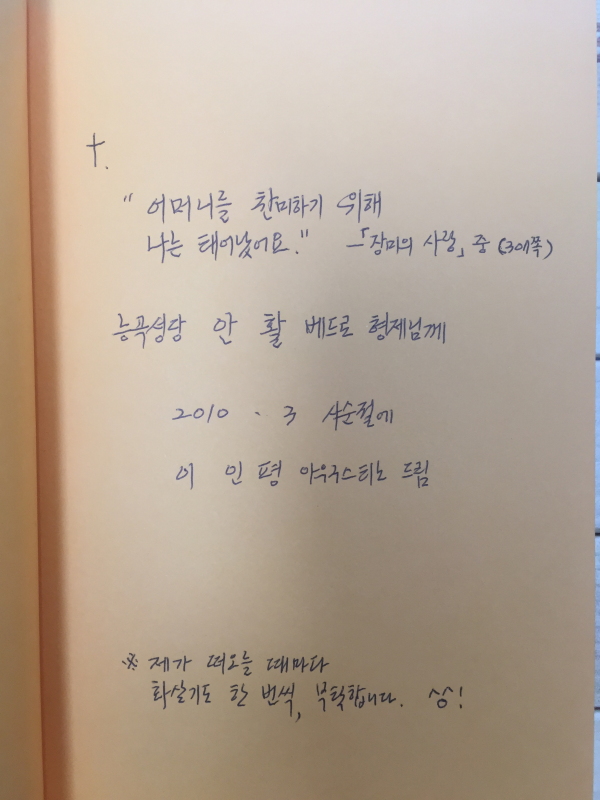 †.
" 어머니를 찬미하기 위해
나는 태어났어요." -「장미의 사랑」 중 (30쪽)
능곡성당 안 활 베드로 형제님께
2010 . 3 사순절에
이 인 평 아우구스티노 드림
※ 제가 떠오를 때마다
화살기도 한 번씩, 부탁합니다. ^^!